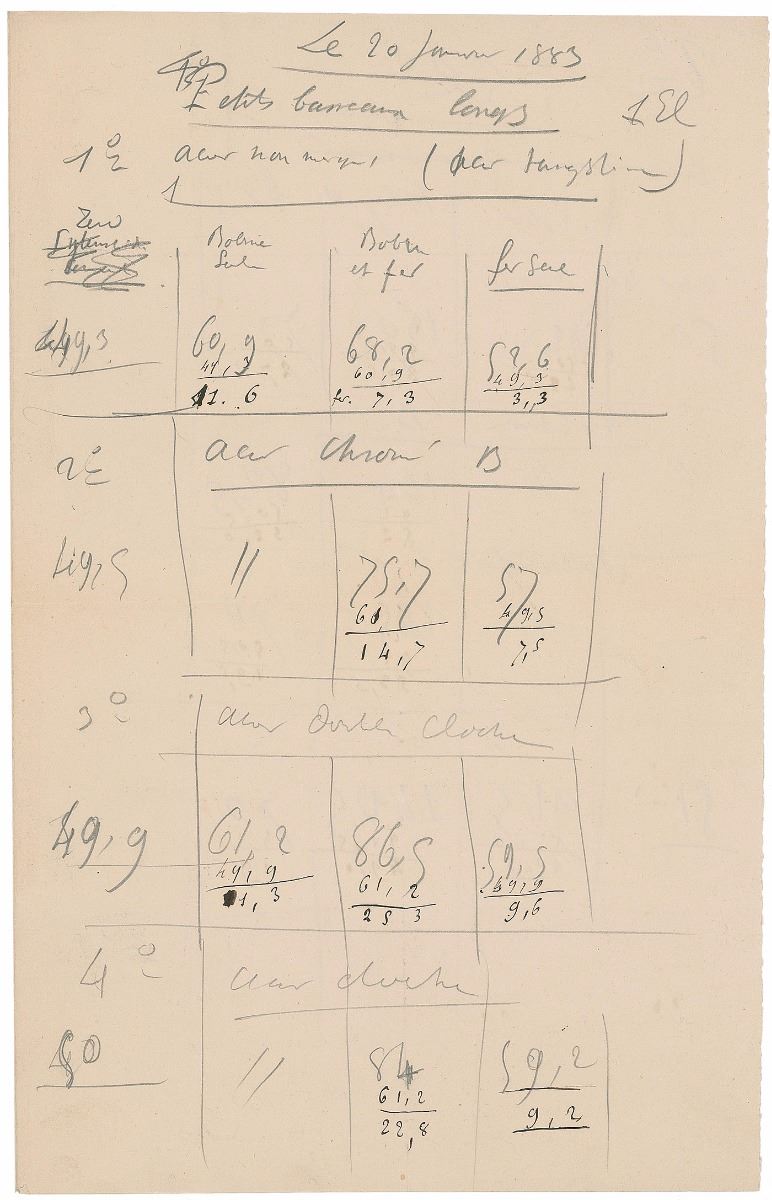 Le 20 Janvier 1883
Petits barreaux longs
1 El
1º acier non marqué (acier tungstène)
Zero Bobine seule Bobine et fer fer seul
49,3 60,9 68,2 52 6
49,3 60,9 49,3
11.6 fer. 7,3 3,3
2º acier chromé B
49,5 // 75,7 57
61 49,5
14,7 7,5
3º acier double cloche
49,9 61,2 86,5 59,5
49,9 61,2 49,9
11,3 25 3 9,6
4º acier cloche
50 // 84 59,2
61,2 9,2
22,8